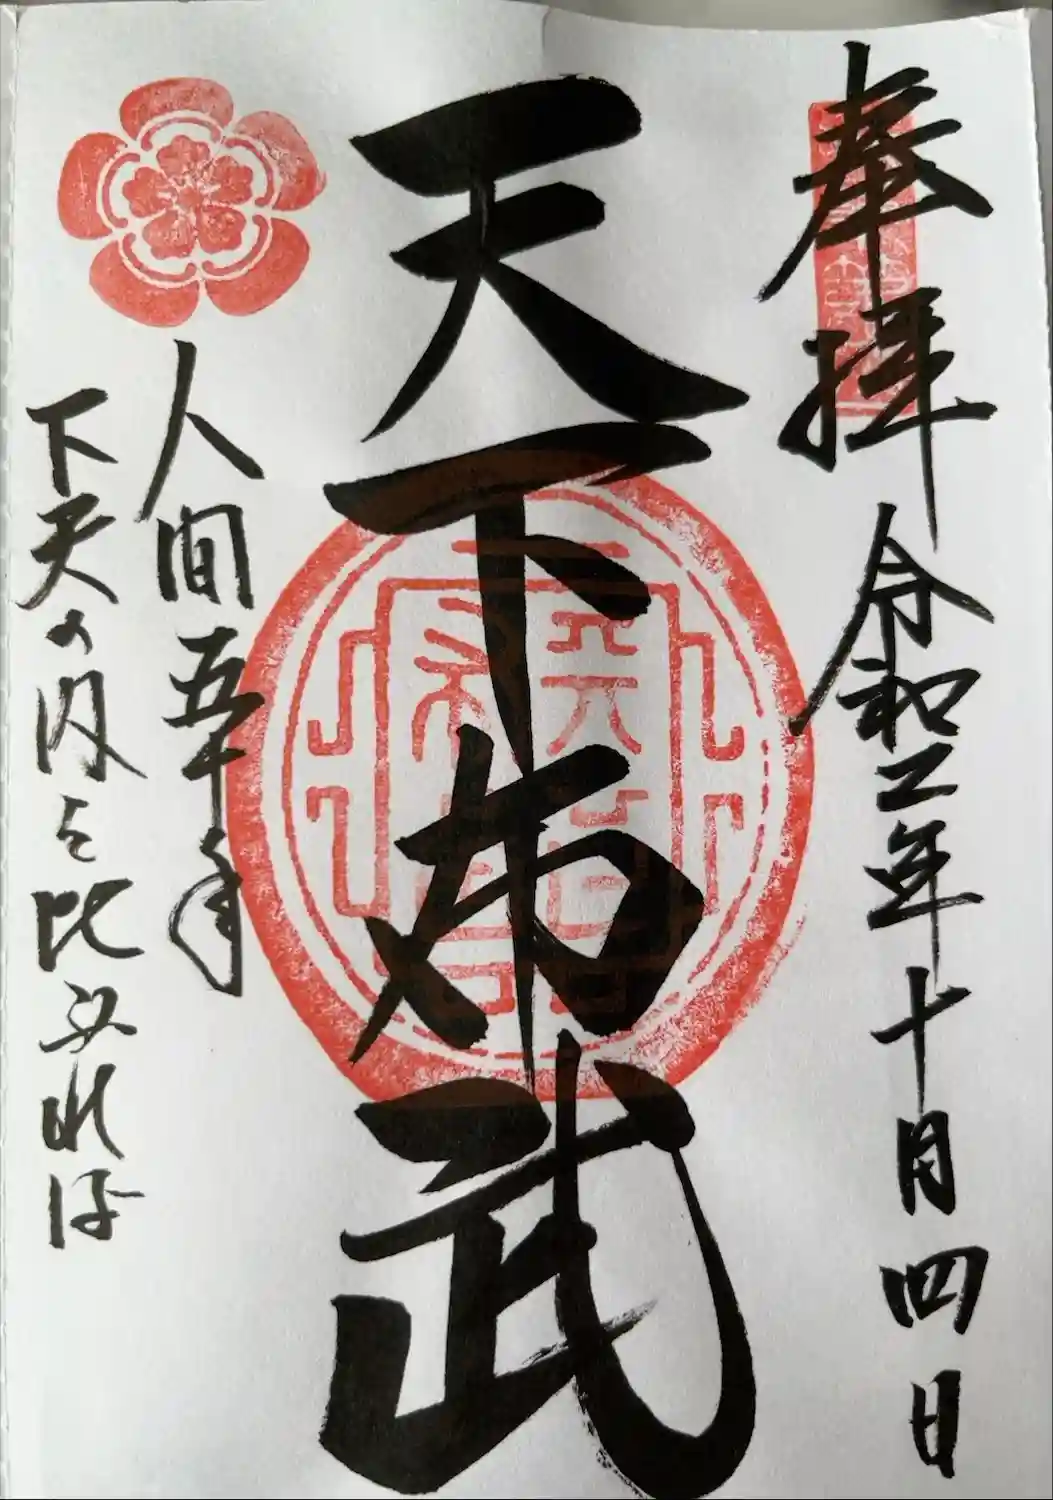 奉拝 令和二年十月四日
天下布武
人間五十年
下天の内を比ぶれば